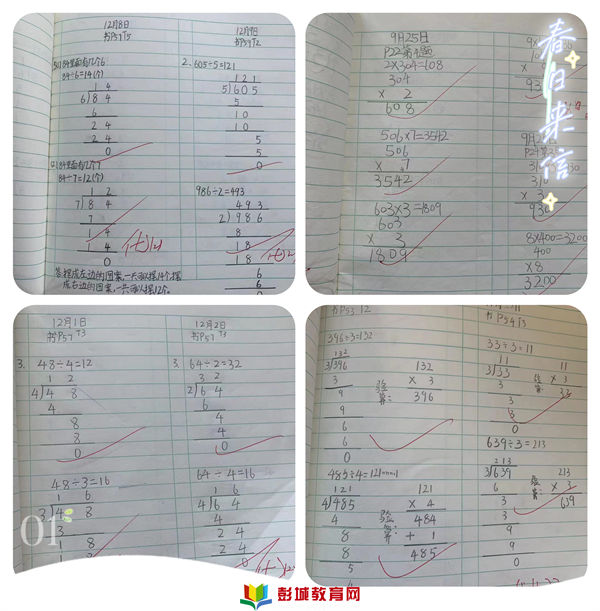 12月8日
书P57T5
3.184里面有几个6
84÷6=14(个)
1 4
6)84
6
2 4
2 4
0
84÷7=12(个)
1 2
7)84
7
1 4
1 4
0
答:摆成左边的图案,一共可以摆14个,摆
成右边的图案,一共可以摆12个。
12月9日
书P57T2
2. 605÷5=121
1 2 1
5)605
5
10
10
5
5
0
986÷2=493
4 9 3
2)986
8
18
18
6
6
9月25日
P22第4题
2×304=608
304
× 2
608
506×7=3542
506
× 7
3542
603×3=1809
603
× 3
1809
8×400=3200
400
×8
3200
春日来信
12月1日
书P57 T3
3. 48÷4=12
1 2
4)4 8
4
8
8
0
48÷3=16
1 6
3)4 8
3
1 8
1 8
01
12月2日
书P57 T3
3. 64÷2=32
3 2
2)64
6
4
4
0
64÷4=16
1 6
4)64
4
2 4
2 4
0
书P53 T2
396÷3=132
132
3)396
3
9
9
6
6
0
验算:
132
× 3
396
485÷4=121……1
121
4)485
4
8
8
5
验算:
121
× 4
484
+ 1
485
书P54T3
33÷3=11
11
3)33
3
3
3
0
验算:
11
× 3
33
639÷3=213
213
3)639
6
3
3
9
9
0
验算:
213
× 3
639
彭城教育网